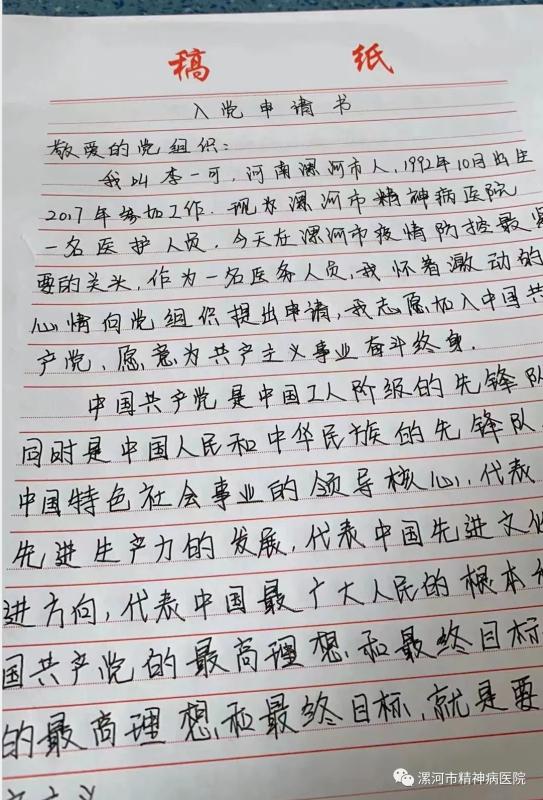 稿 纸
入党申请书
敬爱的党组织：
我叫李一可，河南漯河市人，1992年10月出生
2017年参加工作．现为漯河市精神病医院
一名医护人员，今天在漯河市疫情防控最紧
要的关头，作为一名医务人员，我怀着激动的
心情向党组织提出申请，我志愿加入中国共
产党、愿意为共产主义事业奋斗终身．
中国共产党是中国工人阶级的先锋队
同时是中国人民和中华民族的先锋队
中国特色社会事业的领导核心，代表
先进生产力的发展，代表中国先进文化
进方向，代表中国最广大人民的根本
国共产党的最高理想和最终目标
的最高理想和最终目标，就是要
漯河市精神病医院